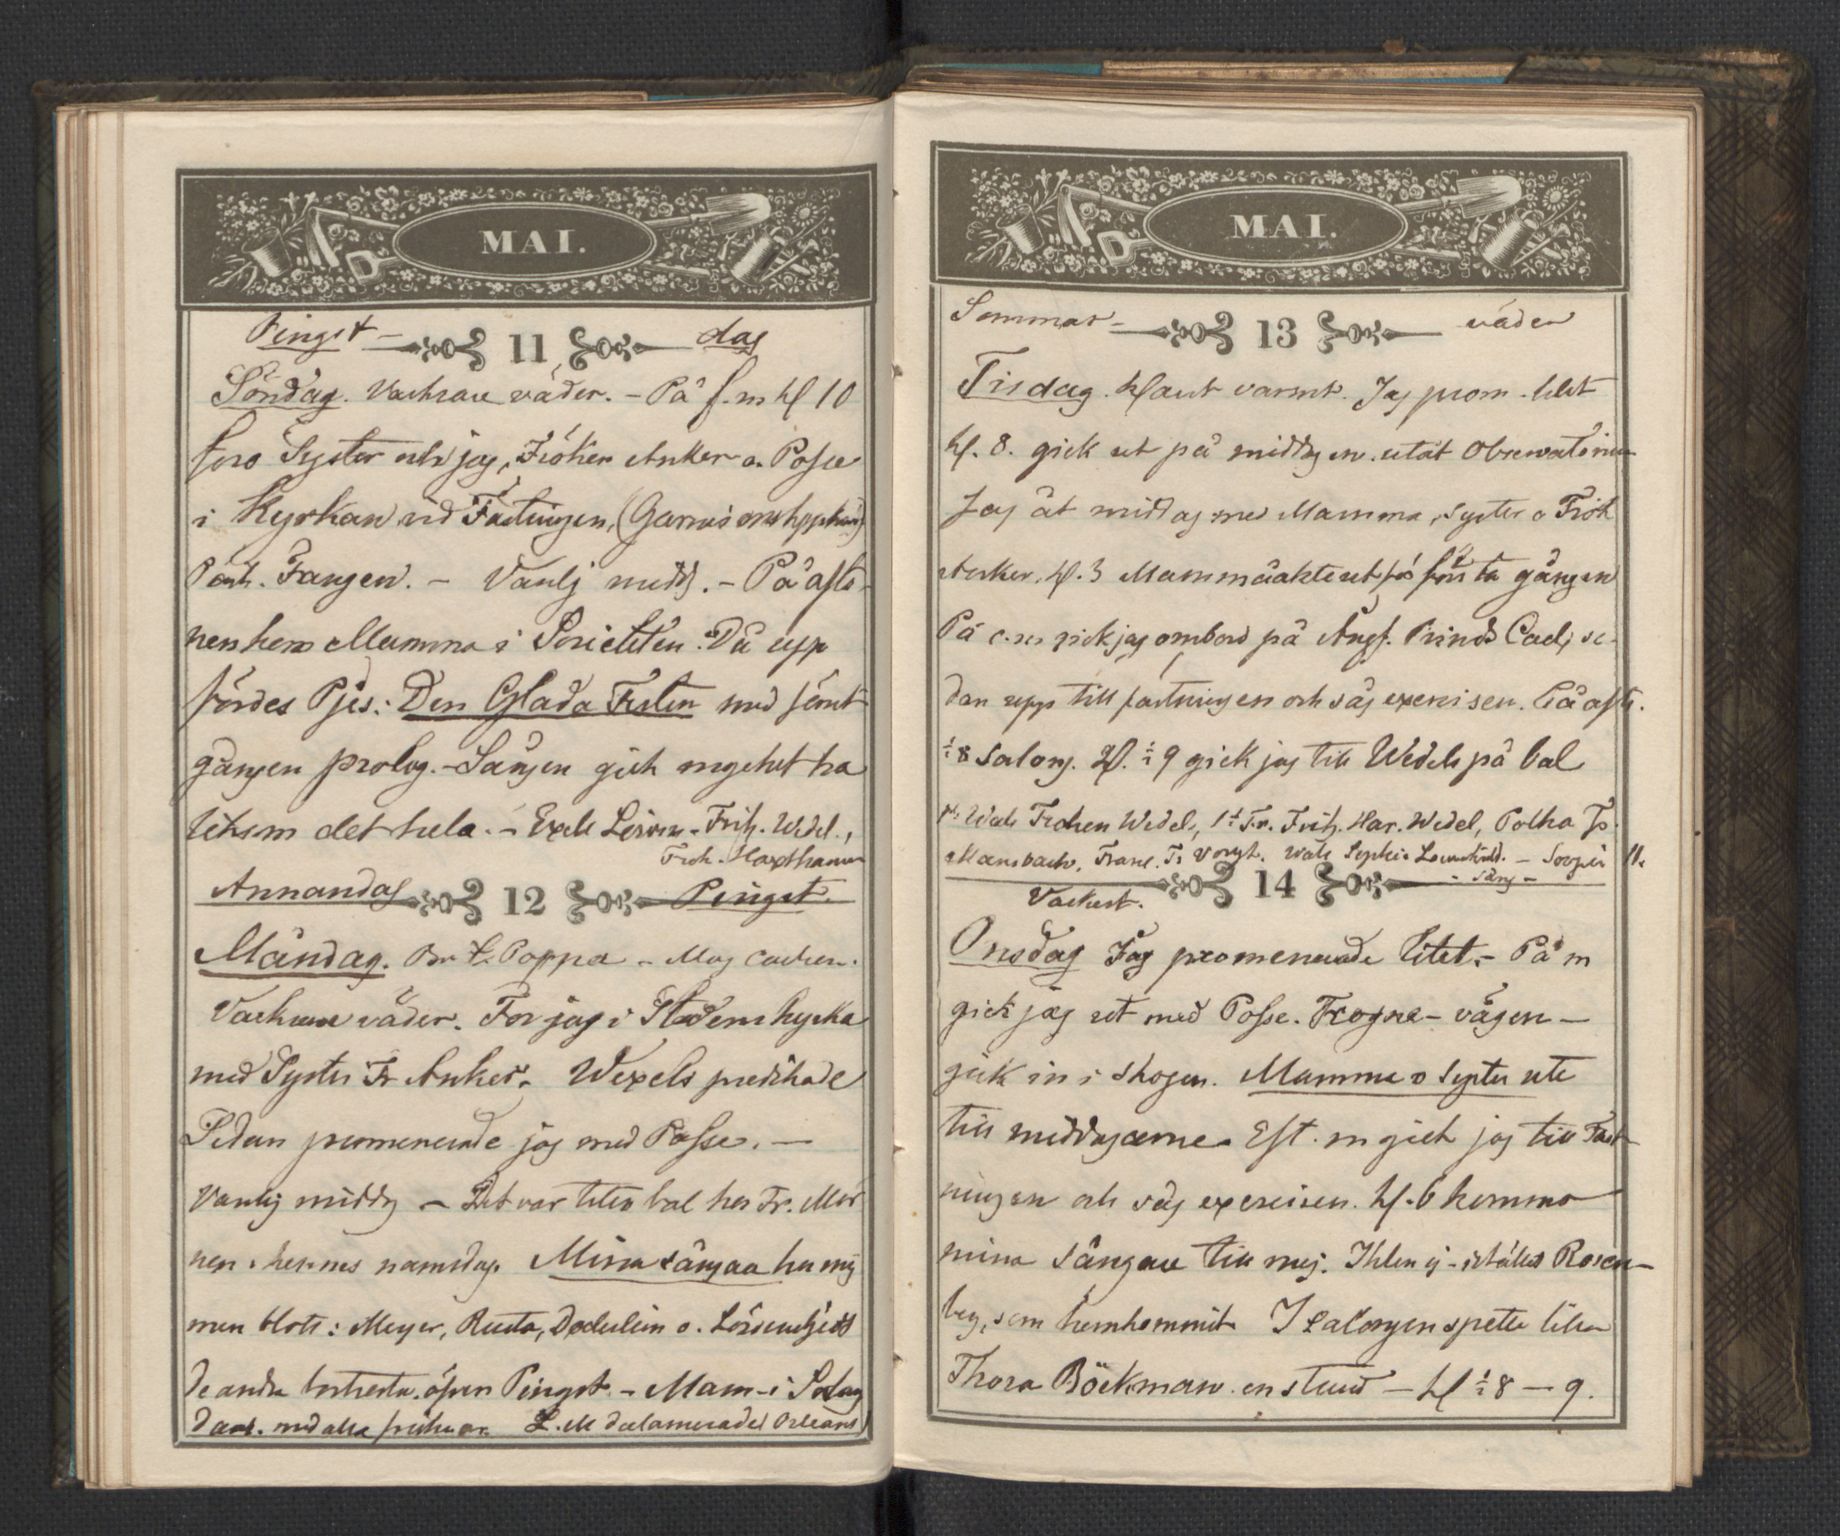 MAI.
Pingst - 11 dag
Söndag. Vackrare väder. - På f.m kl 10
foro Syster och jag, Fröken Anker o. Posse
i Kyrkan vid Fästningen, (Garnisons
Fangen. - Vanlig midd. - På afto-
nen hem Mamma i Societéten. Då upp
fördes Pjes: Den Glada Festen med
gången prolog. - Sången gick mycket bra
liksom det hela. - Fritz. Wedel.,
Frök. Haxthausen
Annandag 12 Pingst.
Måndag. Br. fr. Pappa -
Vackrare väder. For jag i Stadens kyrka
med Syster Fr Anker. Wexels predikade
Sedan promenerade jag med Posse. -
Vanlig middag - Det var liten bal hos Fr. Mör
ner, hennes namsdag. Mina sångare hos mig
men blott: Meyer, Rusta, Døderlein o. Løvenskjold
de andra bortresta öfver Pingst. - Mam - i
dans. med alla L. M declamerade (Orleans)
MAI.
Sommar- 13 väder
Tisdag. Klart varmt. Jag prom. litet
kl. 8. gick ut på middagen utåt Observatorium
Jag åt middag med Mamma, syster o Frök
Anker. kl. 3 Mamma åkte ut för första gången
På e.m gick jag ombord på Ångf. Prinds Carl, se-
dan upp till fästningen och såg exercisen. På aft.
½8 salong. Kl. ½9 gick jag till Wedels på bal
1. Wals Fröken Wedel, 1st Fr. Fritz. Har. Wedel, Polka Fr.
Mansbach, Franc. Fr Vogt. Wals Sophie Løvenskiold. - Soupér 11.
- sång -
14
Vackert.
Onsdag Jag promenerade litet. - På m
gick jag ut med Posse. Frogne - vägen -
gick in i skogen. Mamma o Syster ute
till middagarne. Eft. m gick jag till Fäst-
ningen och såg exercisen. kl. 6 kommo
mina sångare till mej. Ihlen ej - istället Rosen-
berg, som hemkommit. I Salongen spelte lilla
Thora Böckman en stund - kl ½8 - 9.